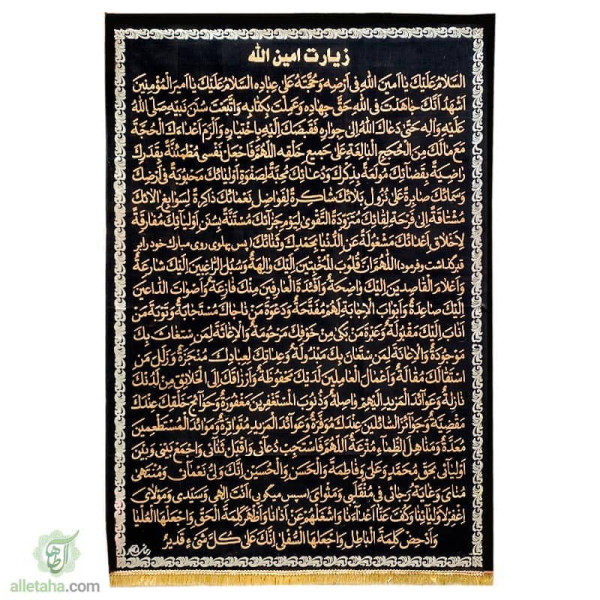 زیارت امین الله
السَّلامُ عَلَیْكَ یا اَمینَ اللهِ فی اَرْضِهِ وَ حُجَّتَهُ عَلی عِبادِهِ السَّلامُ عَلَیْكَ یا اَمیرَ الْمُؤْمِنینَ
اَشْهَدُ اَنَّكَ جاهَدْتَ فِی اللهِ حَقَّ جِهادِهِ وَ عَمِلْتَ بِكِتابِهِ وَ اتَّبَعْتَ سُنَنَ نَبِیِّهِ صَلَّی اللهُ
عَلَیْهِ وَ آلِهِ حَتّی دَعاكَ اللهُ اِلی جِوارِهِ فَقَبَضَكَ اِلَیْهِ بِاخْتِیارِهِ وَ اَلْزَمَ اَعْدائَكَ الْحُجَّةَ
مَعَ مالَكَ مِنَ الْحُجَجِ الْبالِغَةِ عَلی جَمیعِ خَلْقِهِ اَللّهُمَّ فَاجْعَلْ نَفْسی مُطْمَئِنَّةً بِقَدَرِكَ
راضِیَةً بِقَضآئِكَ مُولَعَةً بِذِكْرِكَ وَ دُعآئِكَ مُحِبَّةً لِصَفْوَةِ اَوْلِیآئِكَ مَحْبُوبَةً فی اَرْضِكَ
وَ سَمآئِكَ صابِرَةً عَلی نُزُولِ بَلائِكَ شاكِرَةً لِفَواضِلِ نَعْمآئِكَ ذاكِرَةً لِسَوابِغِ الآئِكَ
مُشْتاقَةً اِلی فَرْحَةِ لِقآئِكَ مُتَزَوِّدَةً التَّقْوی لِیَوْمِ جَزآئِكَ مُسْتَنَّةً بِسُنَنِ اَوْلِیآئِكَ مُفارِقَةً
لِاَخْلاقِ اَعْدائِكَ مَشْغُولَةً عَنِ الدُّنْیا بِحَمْدِكَ وَ ثَنآئِكَ (پس پهلوی روی مبارک خود را بر
قبر گذاشت و فرمود) اَللّهُمَّ اِنَّ قُلُوبَ الْمُخْبِتینَ اِلَیْكَ والِهَةٌ وَ سُبُلَ الرّاغِبینَ اِلَیْكَ شارِعَةٌ
وَ اَعْلامَ الْقاصِدینَ اِلَیْكَ واضِحَةٌ وَ اَفْئِدَةَ الْعارِفینَ مِنْكَ فازِعَةٌ وَ اَصْواتَ الدّاعینَ
اِلَیْكَ صاعِدَةٌ وَ اَبْوابَ الْاِجابَةِ لَهُمْ مُفَتَّحَةٌ وَ دَعْوَةَ مَنْ ناجاكَ مُسْتَجابَةٌ وَ تَوْبَةَ مَنْ
اَنابَ اِلَیْكَ مَقْبُولَةٌ وَ عَبْرَةَ مَنْ بَكی مِنْ خَوْفِكَ مَرْحُومَةٌ وَ الْاِغاثَةَ لِمَنِ اسْتَغاثَ بِكَ
مَوْجُودَةٌ وَ الْاِعانَةَ لِمَنِ اسْتَعانَ بِكَ مَبْذُولَةٌ وَ عِداتِكَ لِعِبادِكَ مُنْجَزَةٌ وَ زَلَلَ مَنِ
اسْتَقالَكَ مُقالَةٌ وَ اَعْمالَ الْعامِلینَ لَدَیْكَ مَحْفُوظَةٌ وَ اَرْزاقَكَ اِلَی الْخَلائِقِ مِنْ لَدُنْكَ
نازِلَةٌ وَ عَوآئِدَ الْمَزیدِ اِلَیْهِمْ واصِلَةٌ وَ ذُنُوبَ الْمُسْتَغْفِرینَ مَغْفُورَةٌ وَ حَوآئِجَ خَلْقِكَ عِنْدَكَ
مَقْضِیَّةٌ وَ جَوآئِزَ السّآئِلینَ عِنْدَكَ مُوَفَّرَةٌ وَ عَوآئِدَ الْمَزیدِ مُتَواتِرَةٌ وَ مَوآئِدَ الْمُسْتَطْعِمینَ
مُعَدَّةٌ وَ مَناهِلَ الظِّمآءِ مُتْرَعَةٌ اَللّهُمَّ فَاسْتَجِبْ دُعآئی وَ اقْبَلْ ثَنآئی وَ اجْمَعْ بَیْنی وَ بَیْنَ
اَوْلِیآئی بِحَقِّ مُحَمَّدٍ وَ عَلِیٍّ وَ فاطِمَةَ وَ الْحَسَنِ وَ الْحُسَیْنِ اِنَّكَ وَلِیُّ نَعْمآئی وَ مُنْتَهی
مُنایَ وَ غایَةُ رَجائی فی مُنْقَلَبی وَ مَثْوایَ (سپس میگویی) اَنْتَ اِلهی وَ سَیِّدی وَ مَوْلایَ
اِغْفِرْ لِاَوْلِیآئِنا وَ كُفَّ عَنّا اَعْدآئَنا وَ اشْغَلْهُمْ عَنْ اَذانا وَ اَظْهِرْ كَلِمَةَ الْحَقِّ وَ اجْعَلْهَا الْعُلْیا
وَ اَدْحِضْ كَلِمَةَ الْباطِلِ وَ اجْعَلْهَا السُّفْلی اِنَّكَ عَلی كُلِّ شَیْءٍ قَدیرٌ
alletaha.com